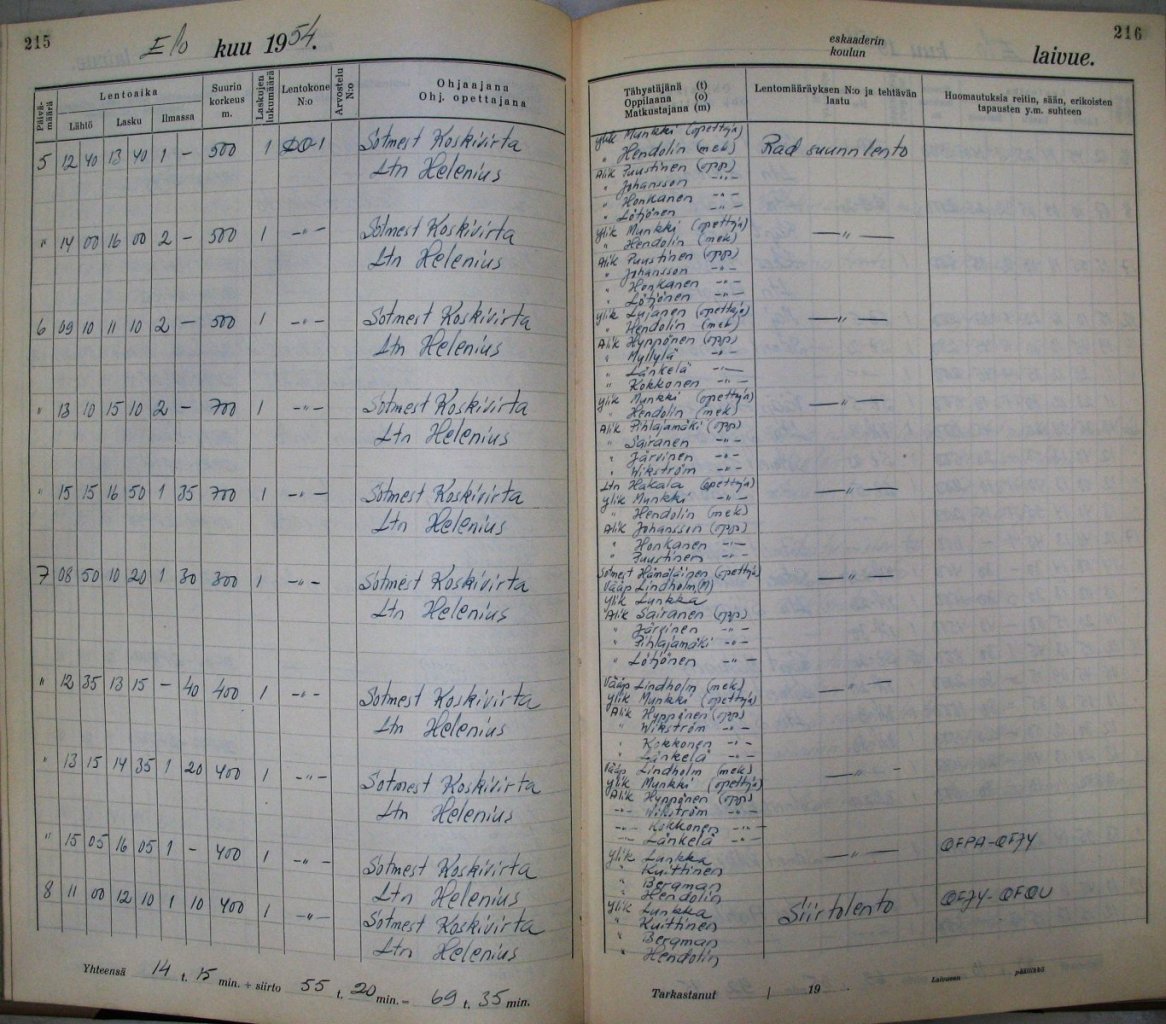 215
Elo kuu 1954.
Päivä-määrä
Lentoaika
Lähtö Lasku Ilmassa
Suurin korkeus m.
Laskujen lukumäärä
Lentokone N:o
Arvostelu N:o
Ohjaajana
Ohj. opettajana
5 12 40 13 40 1 - 500 1 DO-1 Sotmest Koskivirta
Ltn Helenius
" 14 00 16 00 2 - 500 1 -"- Sotmest Koskivirta
Ltn Helenius
6 09 10 11 10 2 - 500 1 -"- Sotmest Koskivirta
Ltn Helenius
" 13 10 15 10 2 - 700 1 -"- Sotmest Koskivirta
Ltn Helenius
" 15 15 16 50 1 35 700 1 -"- Sotmest Koskivirta
Ltn Helenius
7 08 50 10 20 1 30 300 1 -"- Sotmest Koskivirta
Ltn Helenius
" 12 35 13 15 - 40 400 1 -"- Sotmest Koskivirta
Ltn Helenius
" 13 15 14 35 1 20 400 1 -"- Sotmest Koskivirta
Ltn Helenius
" 15 05 16 05 1 - 400 1 -"- Sotmest Koskivirta
Ltn Helenius
8 11 00 12 10 1 10 400 1 -"- Sotmest Koskivirta
Ltn Helenius
Yhteensä 14 t. 15 min. + siirto 55 t. 20 min. = 69 t. 35 min.
216
eskaaderin
koulun
laivue.
Tähystäjänä (t)
Oppilaana (o)
Matkustajana (m)
Lentomääräyksen N:o ja tehtävän laatu
Huomautuksia reitin, sään, erikoisten tapausten y.m. suhteen
Ylik Munkki (opettaja)
" Hendolin (mek) Rad suunnlento
Alik Puustinen (opp)
" Johansson -"-
" Honkanen -"-
" Lötjönen -"-
Ylik Munkki (opettaja) -"-
" Hendolin (mek)
Alik Puustinen (opp)
" Johansson -"-
" Honkanen -"-
" Lötjönen -"-
Ylik Lujanen (opettaja) -"-
" Hendolin (mek)
Alik Hyppönen (opp)
" Myllylä -"-
" Länkelä -"-
" Kokkonen -"-
Ylik Munkki (opettaja) -"-
" Hendolin (mek)
Alik Pihlajamäki (opp)
" Sairanen -"-
" Järvinen -"-
" Wikström -"-
Ltn Hakala (opettaja) -"-
Ylik Munkki -"-
" Hendolin (mek)
Alik Johansson (opp)
" Honkanen -"-
" Puustinen -"-
Sotmest Hämäläinen (opettaja) -"-
Vääp Lindholm (M)
Ylik Lunkka
Alik Sairanen (opp)
" Järvinen -"-
" Pihlajamäki -"-
" Lötjönen -"-
Vääp Lindholm (mek) -"-
Ylik Munkki (opettaja)
Alik Hyppönen (opp)
" Wikström -"-
" Kokkonen -"-
" Länkelä -"-
Vääp Lindholm (mek) -"-
Ylik Munkki (opettaja)
Alik Hyppönen (opp)
-"- Wikström -"-
-"- Kokkonen -"-
-"- Länkelä -"-
Ylik Lunkka -"- QFPA-QFJY
" Kuittinen
" Bergman
" Hendolin
Ylik Lunkka Siirtolento QFJY-QFQU
" Kuittinen
" Bergman
" Hendolin
Tarkastanut / 19
Laivueen päällikkö